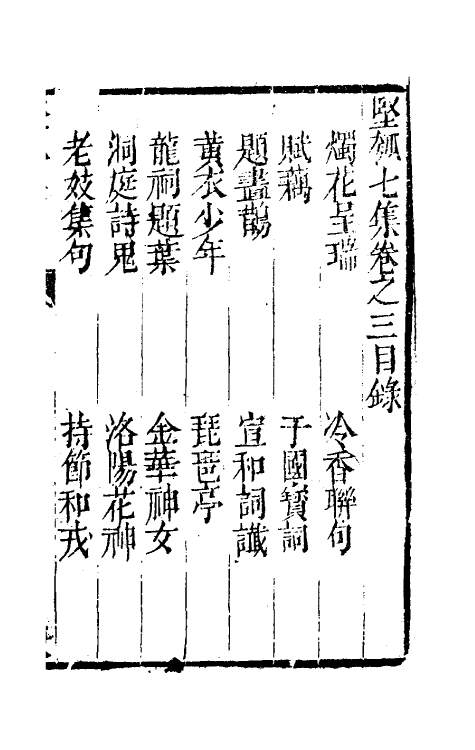 堅瓠七集卷之三目錄
燭花呈瑞　冷香聯句
賦藕　于國寳詞
題畫鵲　宣和詞讖
黄衣少年　琵琶亭
龍祠題葉　金華神女
洞庭詩鬼　洛陽花神
老妓集句　持節和戎